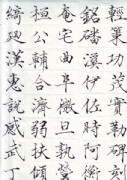 策功茂實勒碑刻
銘磻溪伊尹佐時阿衡
奄宅曲阜微旦孰營
桓公輔合濟弱扶傾
綺迴漢惠說感武丁